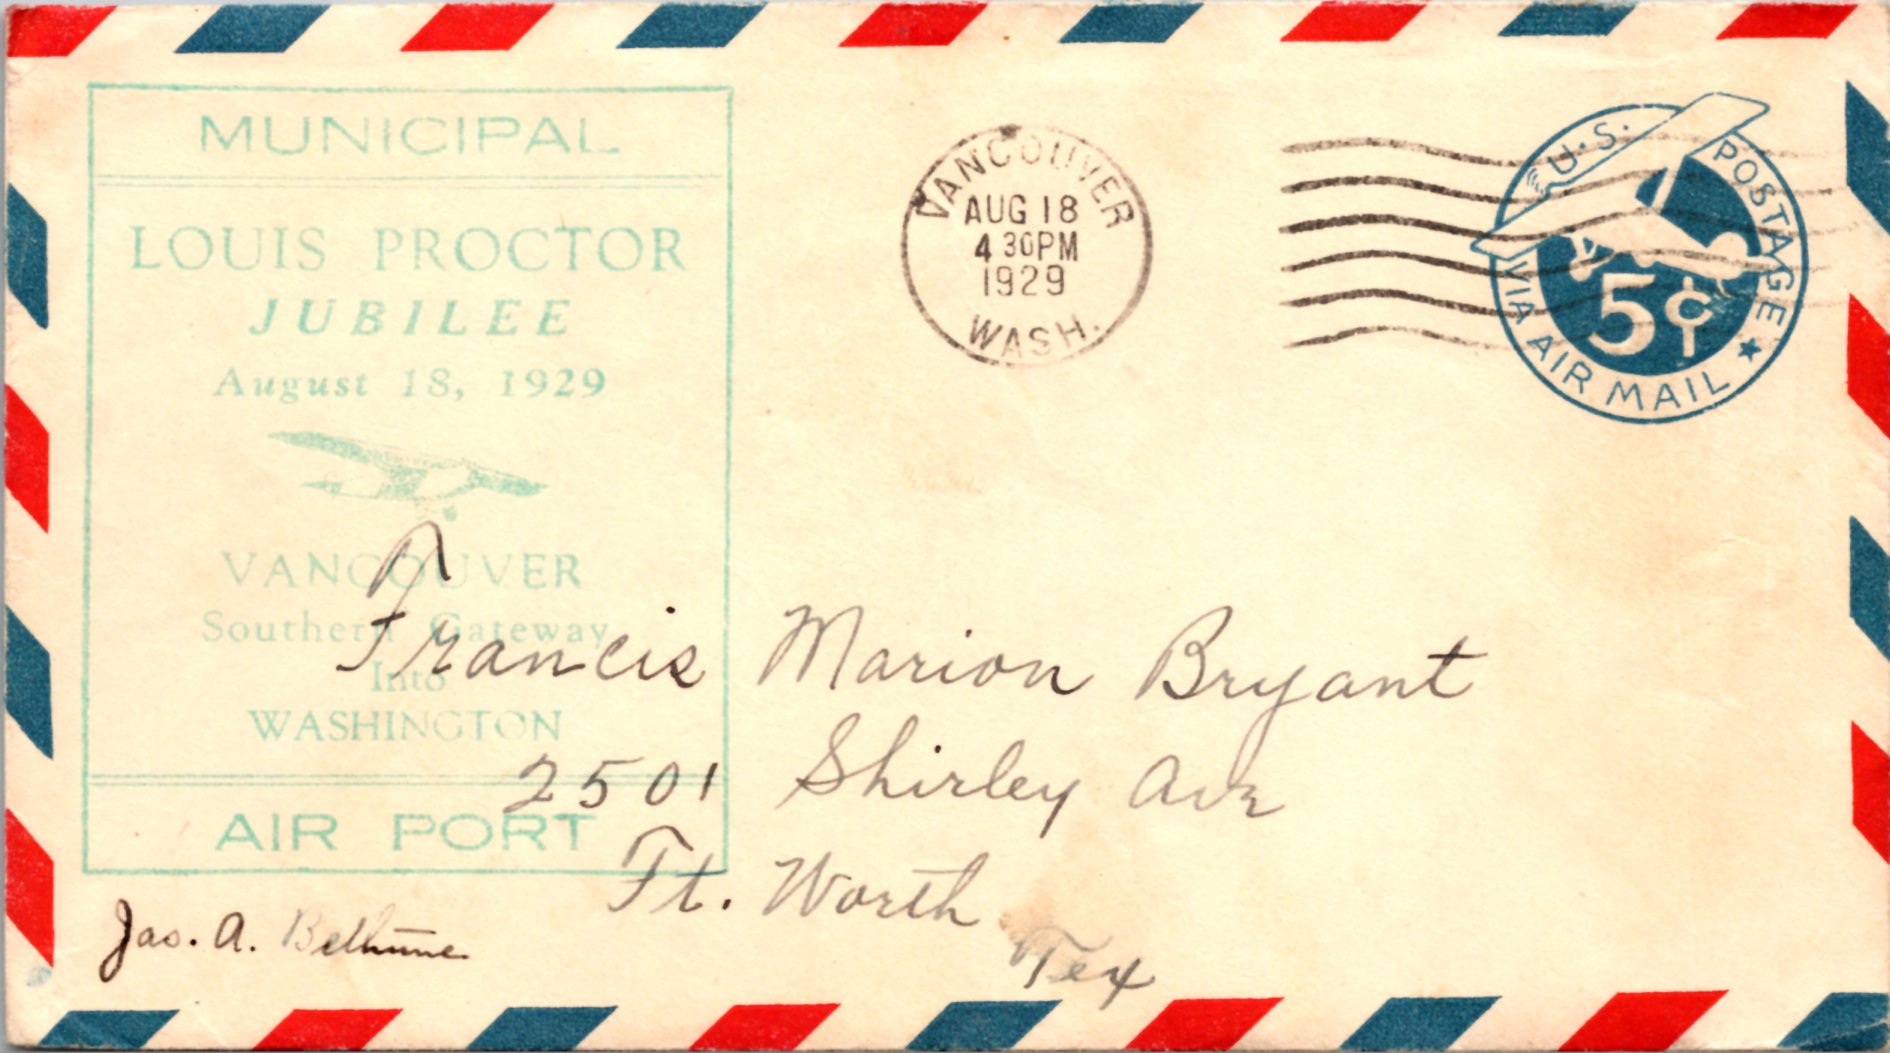 MUNICIPAL
LOUIS PROCTOR
JUBILEE
August 18, 1929
VANCOUVER
Southern Gateway
Into
WASHINGTON
AIR PORT
VANCOUVER
AUG 18
4 30PM
1929
WASH.
U.S. POSTAGE
5¢
VIA AIR MAIL
Francis Marion Bryant
2501 Shirley Ave
Ft. Worth
Tex
Jas. A. Bethune